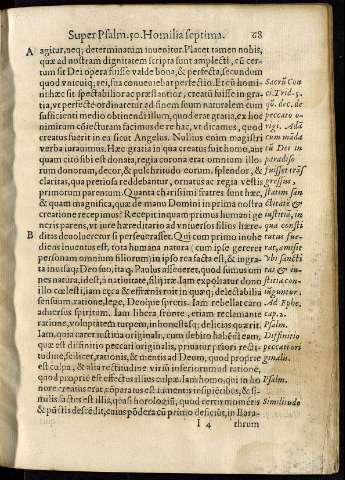 Super Psalm. 50. Homilia septima. 68
A agitur, neq; determinatum inuenitur. Placet tamen nobis,
quæ ad nostram dignitatem scripta sunt amplecti, cū cer-
tum sit Dei opera fuisse valde bona, & perfecta, secundum
quod vnicuiq; rei, sua conueniebat perfectio. Et cū homi-
ni hæc sit spectabilior ac præstantior, creatū fuisse in gra-
tia, vt perfecte ordinaretur ad finem suum naturalem cum
sufficienti medio obtinendi illum, quod erat gratia, ex ho-
nimatam cōiecturam facimus de re hac, vt dicamus, quod
creatus fuerit in ea sicut Angelus. Nullius enim magistri
verba iurauimus. Hæc gratia in qua creatus fuit homo, ant
quam cito sibi est donata, regia corona erat omnium illo-
rum donorum, decor, & pulchritudo eorum, splendor, &
claritas, qua pretiosi reddebantur, ornatus ac regia vestis
primorum parentum. Quanta charissimi fratres sunt hæc,
& quam magnifica, quæ de manu Domini in prima nostra
creatione recepimus? Recepit inquam primus humani ge
neris parens, vt iure hæreditario ad vniuersos filios hære-
B ditas deuolueretur si perseuerasset. Qui cum primo inobe
diens inuentus est, tota humana natura (cum ipse gereret
personam omnium filiorum) in ipso rea facta est, & ingra-
ta inuisaq; Deo suo, ita q. Paulus asseueret, quod sumus om
nes natura, id est, a natiuitate, filij iræ. Iam expoliatur dono
illo cælesti, iam cæca & effrænis ruit in quæq; delectabilia
sensuum, ratione, lege, Deoque spretis. Iam rebellat caro
aduersus spiritum. Iam libera fronte, etiam reclamante
ratione, voluptatem turpem, inhonestasq; delicias quærit.
Iam, quia caret iustitia originali, cum debito habēdi eam,
quæ est diffinitio peccati originalis, priuatur priori recti-
tudine, scilicet, rationis, & mentis ad Deum, quod proprie
est culpa, & alia rectitudine viriū inferiorum ad rationē,
quod proprie est effectus illius culpæ. Iam homo, qui in ho
nore creatus erat, cōparatus est iumentis insipiētibus, & si-
milis factus est illis, quasi horologiū, quod certis mometis
& pūctis descēdit, cuius pōdera cū primo desciūt, in Bara-
I 4 thrum
Sacrū Con
ci. Trid. 5.
qū. dec. de
peccato o-
rigi. Adā
cum mādā
tū Dei in
paradiso
fuisset trās
gressus,
statim san
ctitatē &
iustitiā, in
qua consti
tutus fue-
rat, amisit
Vbi sancti
tas & iu-
stitia con-
iūguntur.
Ad Ephe.
cap. 2.
Psalm.
Diffinitio
peccati ori
ginalis.
Psalm.
Similitudo